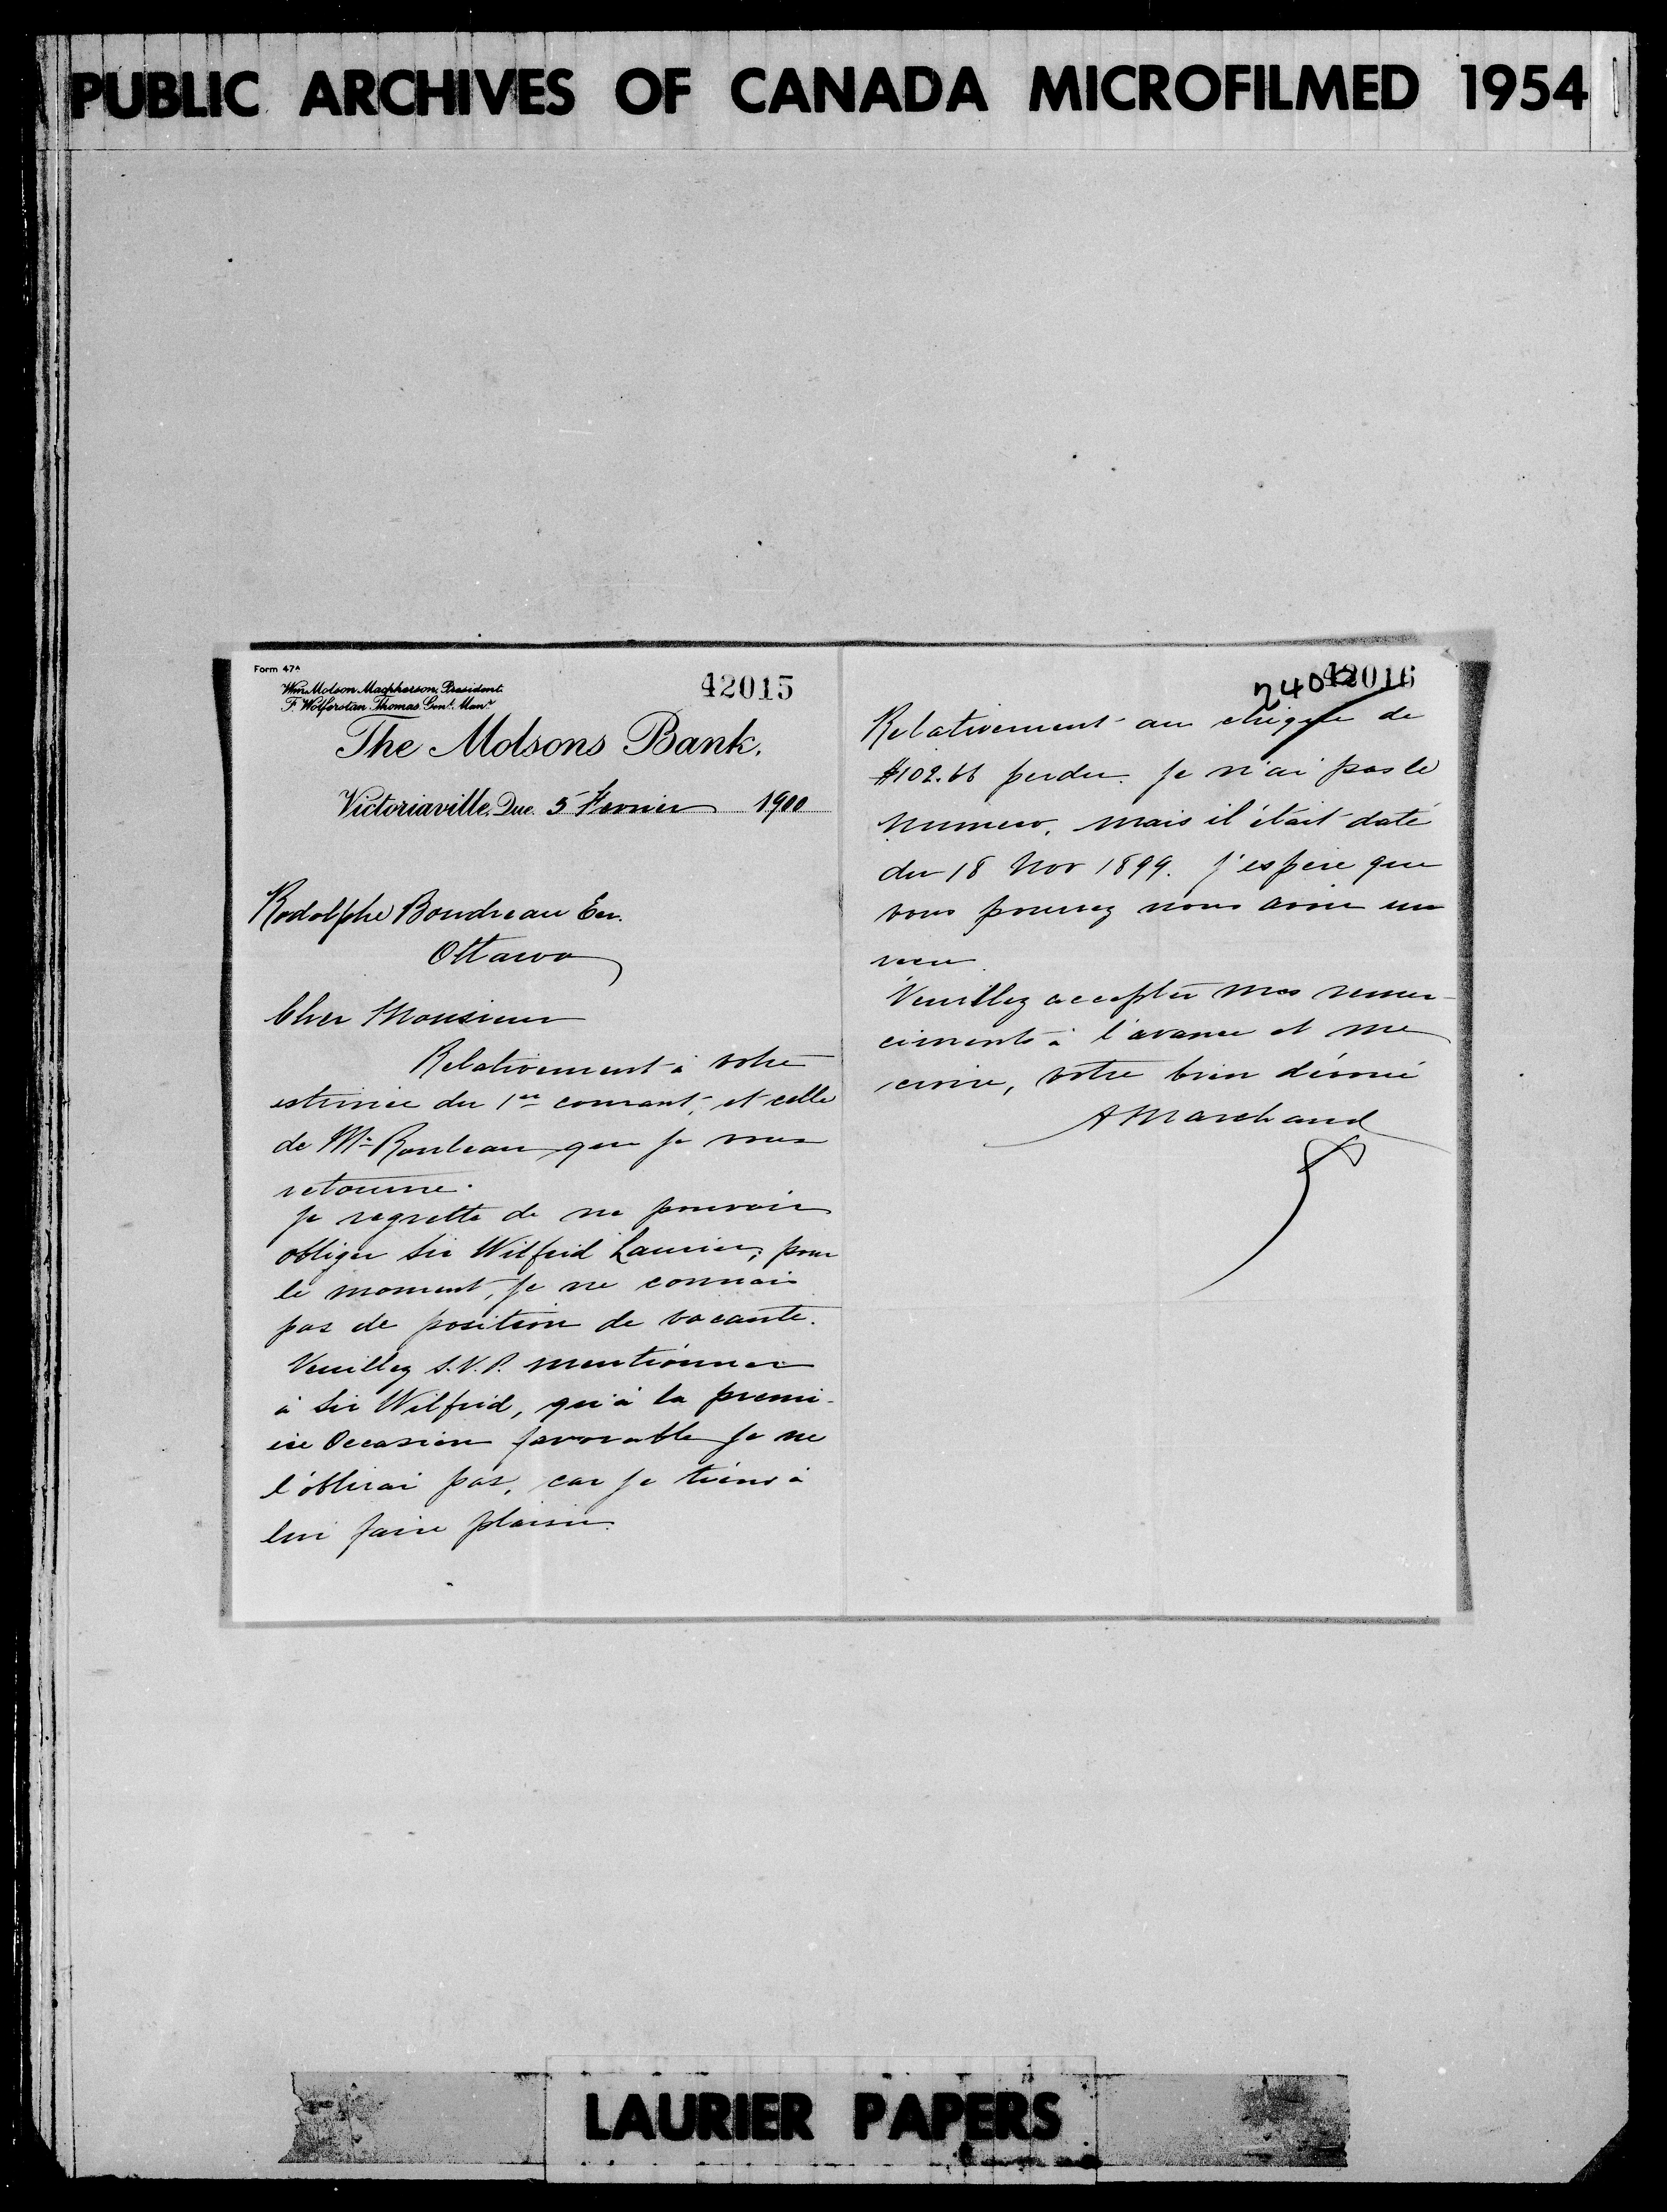 PUBLIC ARCHIVES OF CANADA MICROFILMED 1954
Form 47A
Wm. Molson Macpherson, President.
F. Wolferstan Thomas, Genl. Manr.
42015
The Molsons Bank,
Victoriaville, Que. 5 Fevrier 1900
Rodolphe Boudreau Ecr.
Ottawa
Cher Monsieur
Relativement à votre
estimée du 1er courant, et celle
de Mr Rouleau que je vous
retourne.
Je regrette de ne pouvoir
obliger Sir Wilfrid Laurier; pour
le moment, je ne connais
pas de position de vacante.
Veuillez S.V.P. mentionner
à Sir Wilfrid, qu'à la premi-
ère Occasion favorable je ne
l'oblirai pas, car je tiens à
lui faire plaisir.
42016
Relativement au chèque de
$102.66 perdu. Je n'ai pas le
numero, mais il était daté
du 18 Nov 1899. J'espère que
vous pourrez nous avoir un
Veuillez accepter mes remer-
ciments à l'avance et me
croire, votre bien dévoué
A Marchand
LAURIER PAPERS